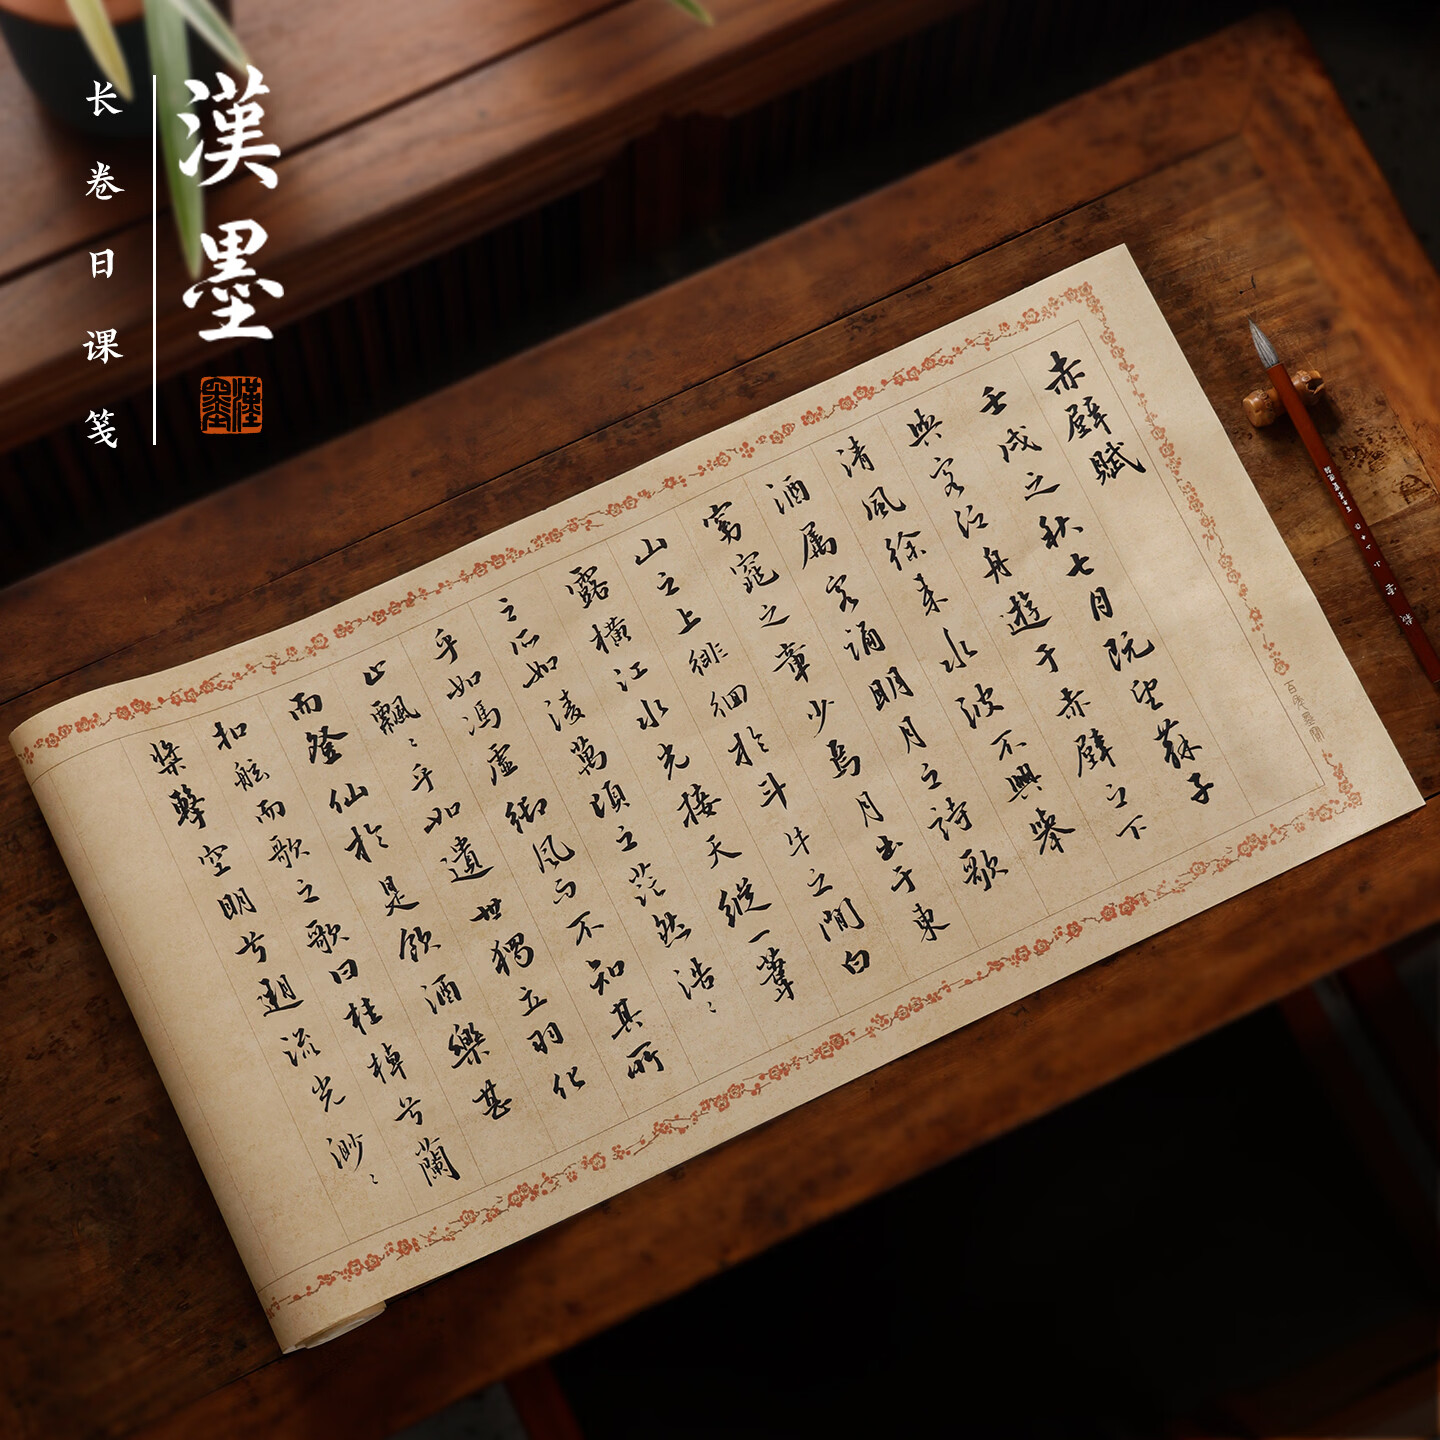 漢墨
长卷日课笺
漢墨
赤壁賦
壬戌之秋七月既望蘇子
與客泛舟遊于赤壁之下
清風徐来水波不興舉
酒属客誦明月之詩歌
窈窕之章少焉月出于東
山之上徘徊於斗牛之間白
露橫江水光接天縱一葦
之所如淩萬頃之茫然浩〻
乎如馮虛御風而不知其所
止飄〻乎如遺世獨立羽化
而登仙於是飲酒樂甚
扣舷而歌之歌曰桂棹兮蘭
槳擊空明兮遡流光渺〻